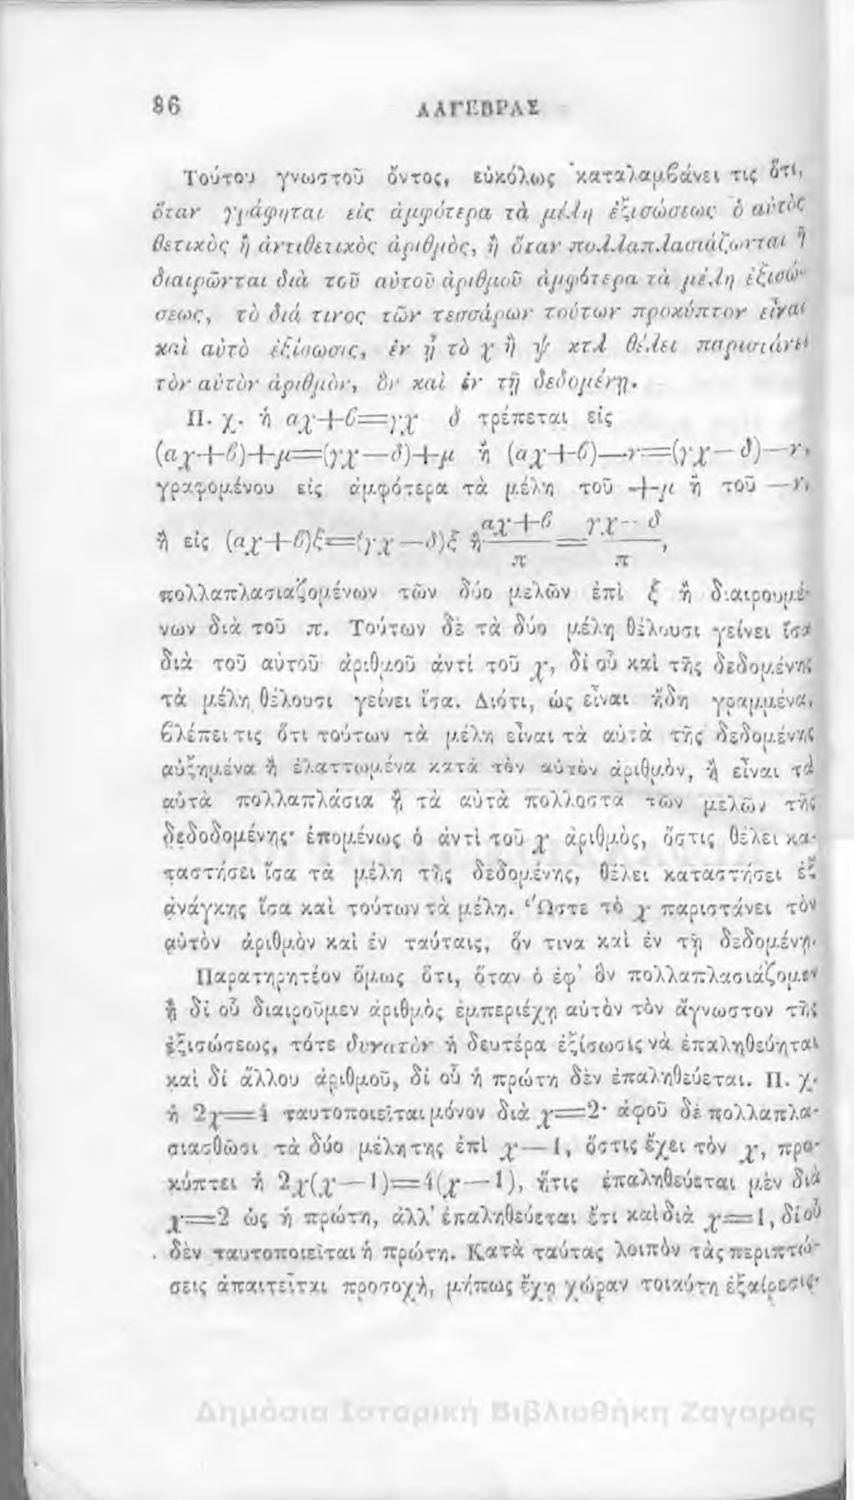 86 ΑΛΓΕΒΡΑΣ
Τούτου γνωστοῦ ὄντος, εὐκόλως καταλαμβάνει τις ὅτι,
ὅταν γράφηται εἰς ἀμφότερα τὰ μέλη ἐξισώσεως ὁ αὐτὸς
θετικὸς ἢ ἀντιθετικὸς ἀριθμὸς, ἢ ὅταν πολλαπλασιάζωνται ἢ
διαιρῶνται διὰ τοῦ αὐτοῦ ἀριθμοῦ ἀμφότερα τὰ μέλη ἐξισώ-
σεως, τὸ διά τινος τῶν τεσσάρων τούτων προκύπτον εἶναι
καὶ αὐτὸ ἐξίσωσις, ἐν ᾗ τὸ χ ἢ ψ κτλ θέλει παριστάνει
τὸν αὐτὸν ἀριθμὸν, ὃν καὶ ἐν τῇ δεδομένῃ.
Π. χ. ἡ αχ+ϐ=γχ δ τρέπεται εἰς
(αχ+ϐ)+μ=(γχ—δ)+μ ἢ (αχ+ϐ)—ν=(γχ—δ)—ν,
γραφομένου εἰς ἀμφότερα τὰ μέλη τοῦ +μ ἢ τοῦ —ν,
ἢ εἰς (αχ+ϐ)ξ=(γχ—δ)ξ ἢ αχ+ϐ/π = γχ-δ/π,
πολλαπλασιαζομένων τῶν δύο μελῶν ἐπὶ ξ ἢ διαιρουμέ-
νων διὰ τοῦ π. Τούτων δὲ τὰ δύο μέλη θέλουσι γείνει ἴσα
διὰ τοῦ αὐτοῦ ἀριθμοῦ ἀντὶ τοῦ χ, δί οὗ καὶ τῆς δεδομένης
τὰ μέλη θέλουσι γείνει ἴσα. Διότι, ὡς εἶναι ἤδη γραμμένα,
βλέπει τις ὅτι τούτων τὰ μέλη εἶναι τὰ αὐτὰ τῆς δεδομένης
αὐξημένα ἢ ἐλαττωμένα κατὰ τὸν αὐτὸν ἀριθμὸν, ἢ εἶναι τὰ
αὐτὰ πολλαπλάσια ἢ τὰ αὐτὰ πολλοστὰ τῶν μελῶν τῆς
δεδοδομένης· ἑπομένως ὁ ἀντὶ τοῦ χ ἀριθμὸς, ὅστις θέλει κα-
ταστήσει ἴσα τὰ μέλη τῆς δεδομένης, θέλει καταστήσει ἐξ
ἀνάγκης ἴσα καὶ τούτων τὰ μέλη. Ὥστε τὸ χ παριστάνει τὸν
αὐτὸν ἀριθμὸν καὶ ἐν ταύταις, ὅν τινα καὶ ἐν τῇ δεδομένῃ.
Παρατηρητέον ὅμως ὅτι, ὅταν ὁ ἐφ' ὃν πολλαπλασιάζομεν
ἢ δί οὗ διαιροῦμεν ἀριθμὸς ἐμπεριέχῃ αὐτὸν τὸν ἄγνωστον τῆς
ἐξισώσεως, τότε δυνατὸν ἡ δευτέρα ἐξίσωσις νὰ ἐπαληθεύηται
καὶ δί ἄλλου ἀριθμοῦ, δί οὗ ἡ πρώτη δὲν ἐπαληθεύεται. Π. χ.
ἡ 2χ=4 ταυτοποιεῖται μόνον διὰ χ=2· ἀφοῦ δὲ πολλαπλα-
σιασθῶσι τὰ δύο μέλη της ἐπὶ χ—1, ὅστις ἔχει τὸν χ, προ-
κύπτει ἡ 2χ(χ—1)=4(χ—1), ἥτις ἐπαληθεύεται μὲν διὰ
χ=2 ὡς ἡ πρώτη, ἀλλ' ἐπαληθεύεται ἔτι καὶ διὰ χ=1, δί οὗ
δὲν ταυτοποιεῖται ἡ πρώτη. Κατὰ ταύτας λοιπὸν τὰς περιπτώ-
σεις ἀπαιτεῖται προσοχὴ, μήπως ἔχῃ χώραν τοιαύτη ἐξαίρεσις·
Δημόσια Ιστορική Βιβλιοθήκη Ζαγοράς